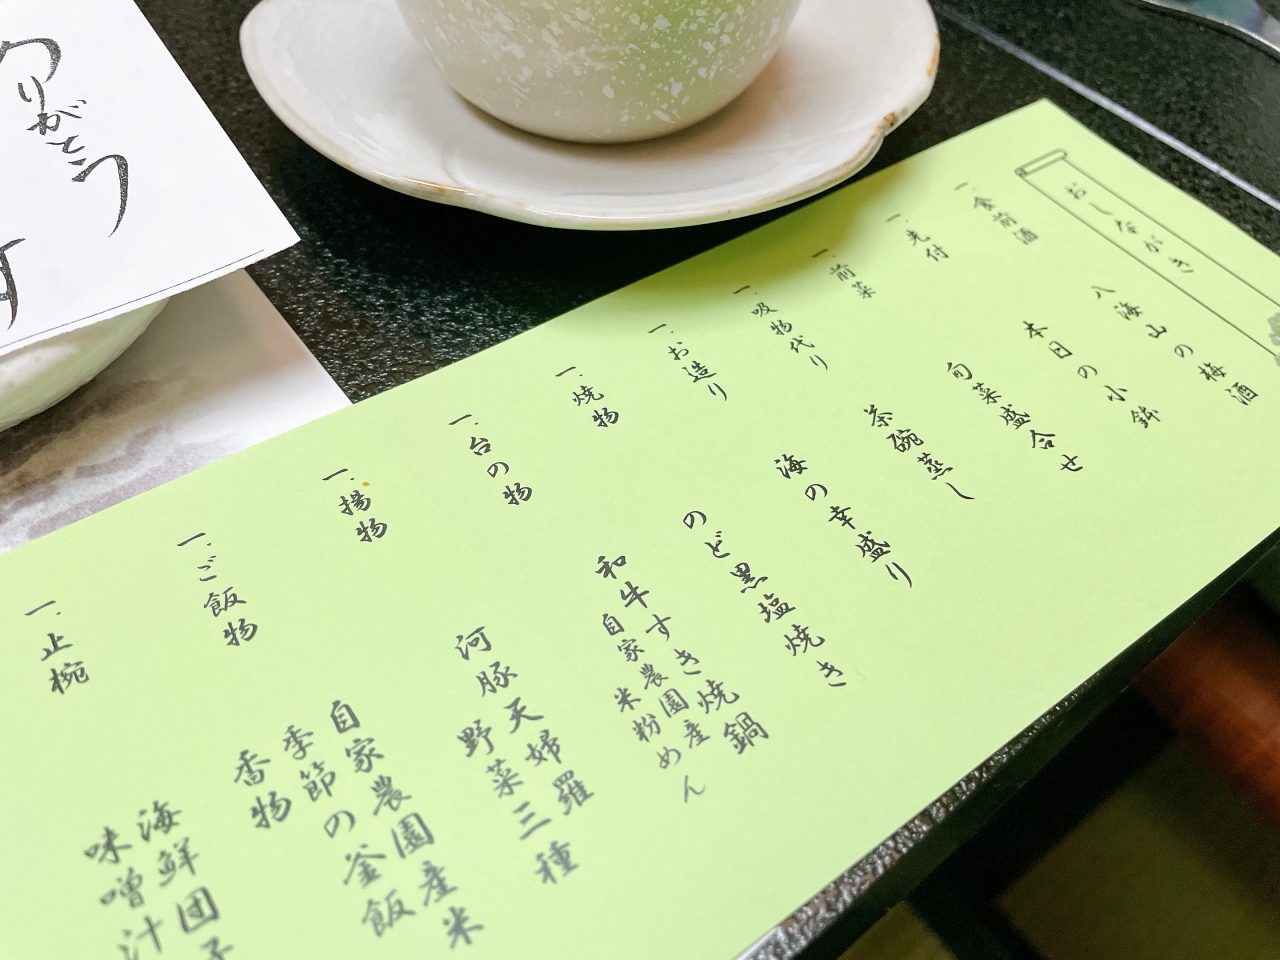 おしながき
一.食前酒
八海山の梅酒
一.先付
本日の小鉢
一.前菜
旬菜盛合せ
一.吸物代り
茶碗蒸し
一.お造り
海の幸盛り
一.焼物
のど黒塩焼き
一.台の物
和牛すき焼鍋
自家農園産
米粉めん
一.揚物
河豚天婦羅
野菜三種
一.ご飯物
自家農園産米
季節の釜飯
香物
一.止椀
海鮮団子
味噌汁
ありがとう